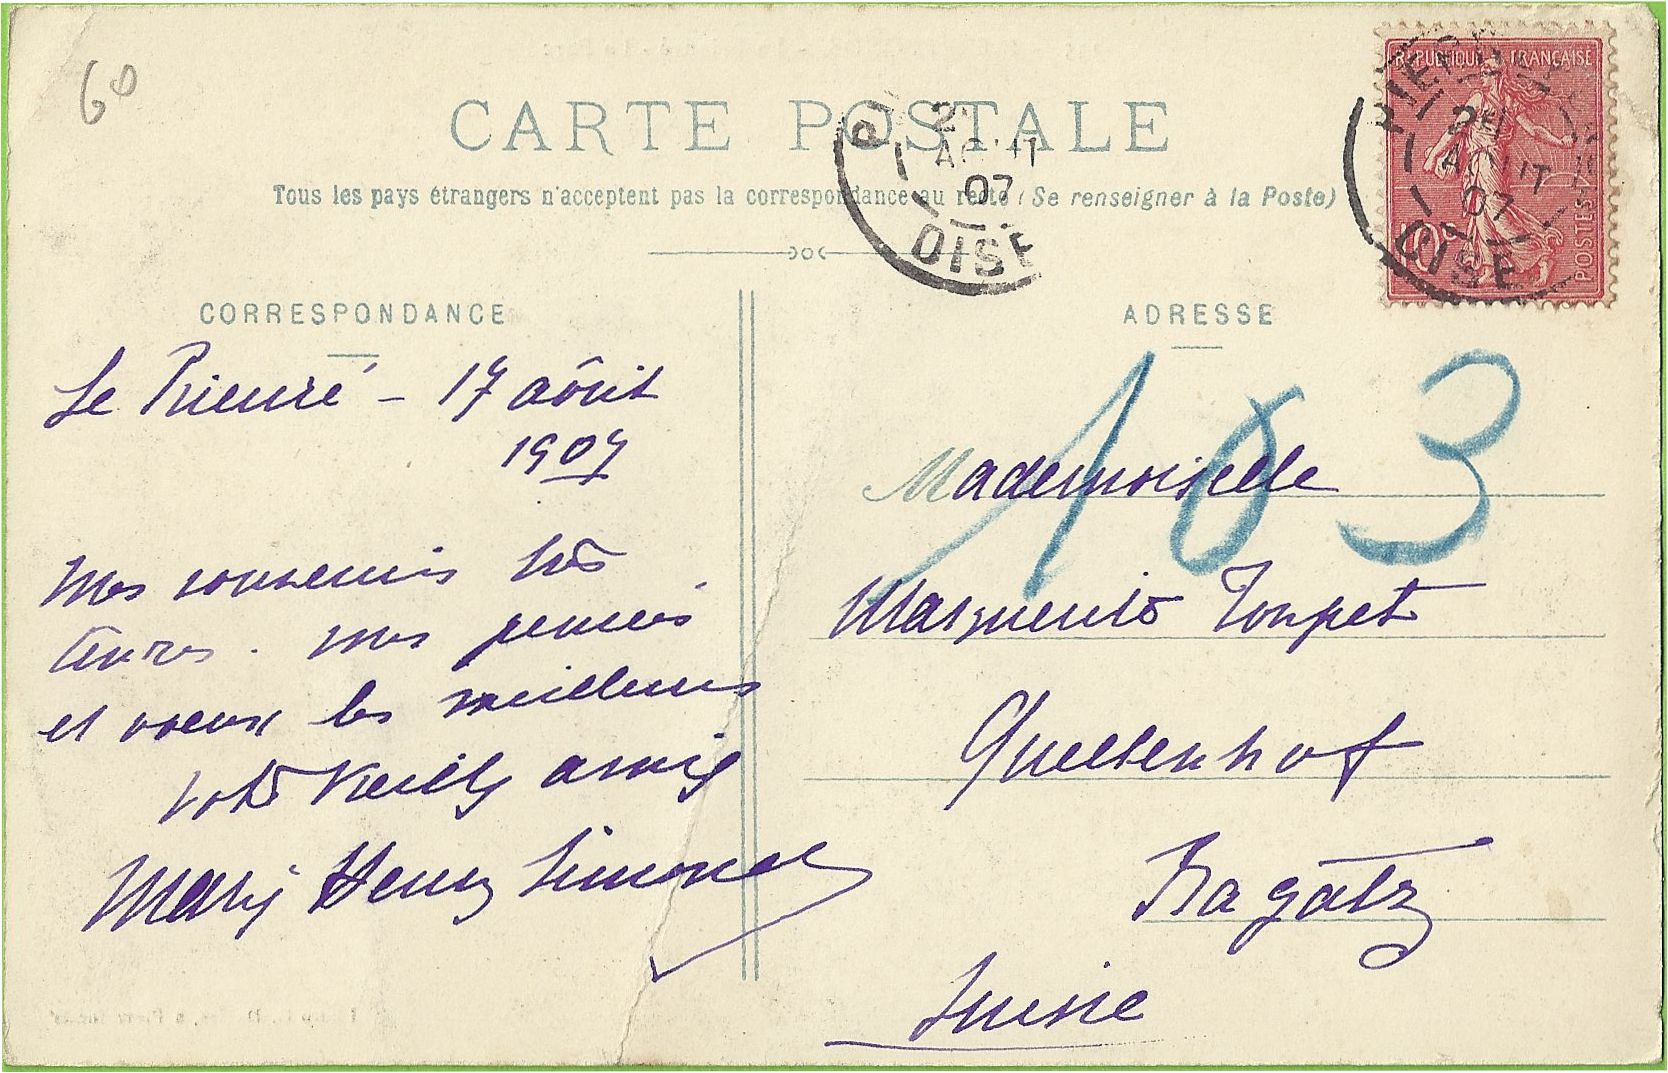 60
CARTE POSTALE
Tous les pays étrangers n'acceptent pas la correspondance au recto (Se renseigner à la Poste)
RÉPUBLIQUE FRANÇAISE
POSTES
10
AOUT
07
OISE
AOUT
07
OISE
CORRESPONDANCE
Le Prieuré - 17 août
1907
Mes souvenirs très
tendres. mes pensées
et voeux les meilleurs
votre vieille amie
Marie Henry Simonet
ADRESSE
103
Mademoiselle
Marguerite Toupet
Quellenhof
Ragatz
Suisse